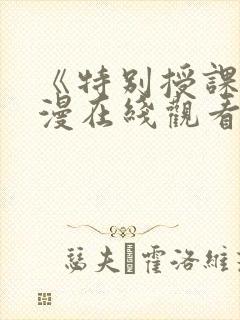 《特別授課
漫在綫觀看
瑟夫 霍洛維